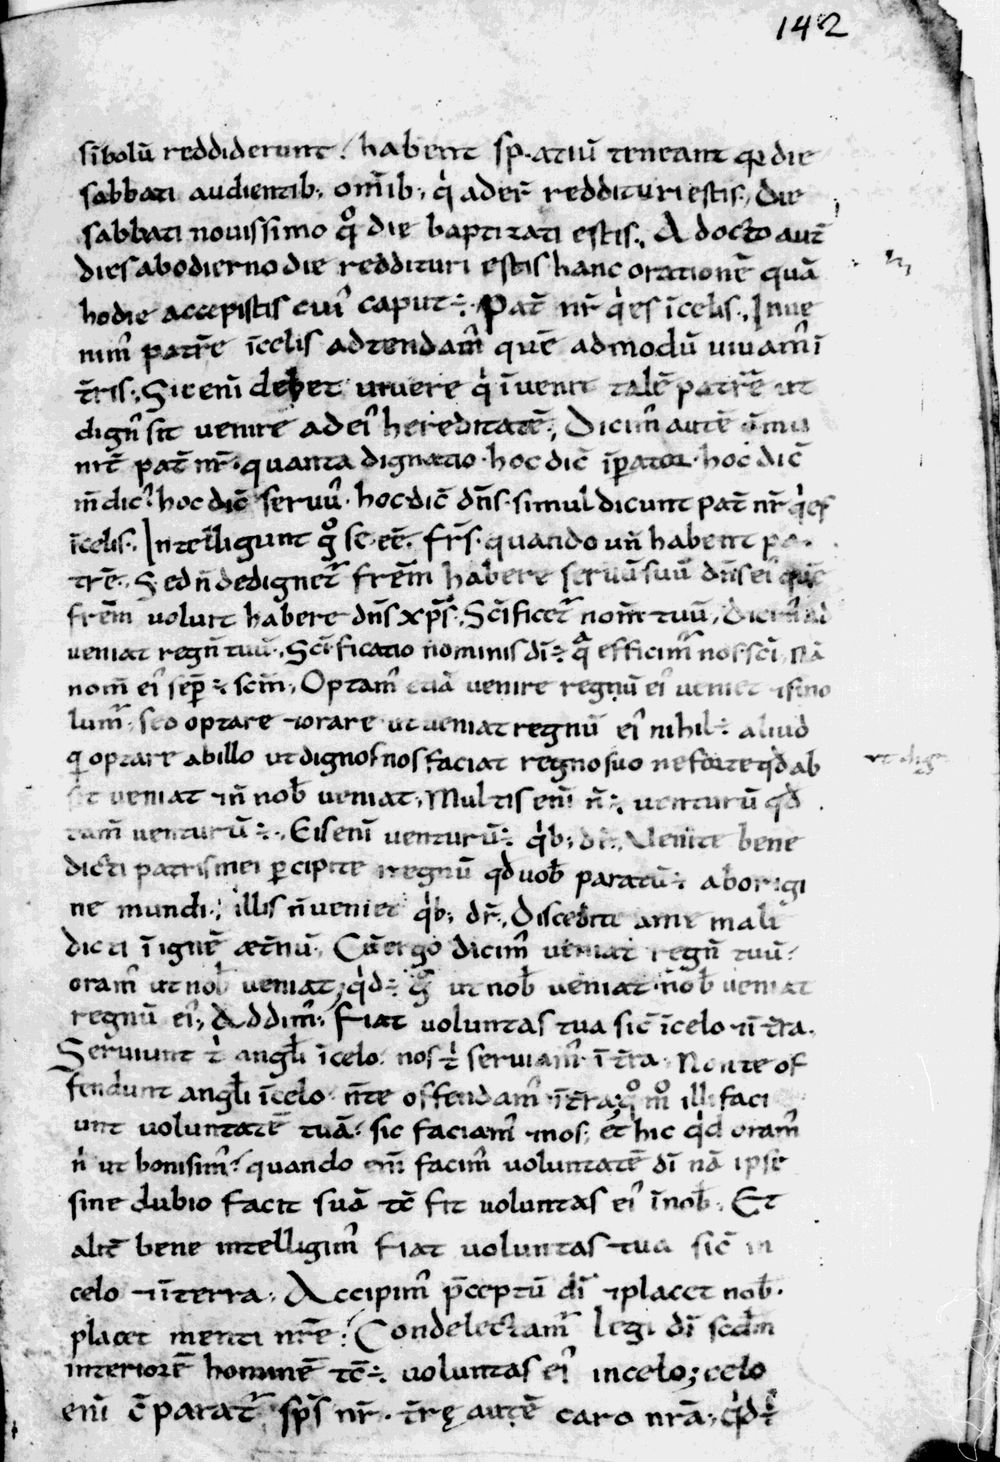 142
sībolū reddiderunt. habent sp.atiū teneant q̄ die
sabbati audientib; om̄ib; q̇ ader̄ reddituri estis; die
sabbati nouissimo q̊ die baptizati estis; A docto aut̄
dies abodierno die reddituri estis hanc orationē quā
hodie accepistis cui' caput ÷ Pat̄ nr̄ q̇ es ī celis; Inue
nim' patrē ī celis adtendam' quē admodū uiuam' ī
t̄ris; Sic enī debet uiuere q̇ īuenit talē patrē ut
dign' sit uenire ad ei' hereditatē; Dicim' autē
nit̄ pat̄ nr̄ · quanta dignatio · hoc dic̄ īpator · hoc dic̄
m̄dic' hoc dic̄ seruu' · hoc dic̄ dn̄s · simul dicunt pat̄ nr̄ q̇ es
ī celis; Intelligunt g̊ se eē fr̄s · quando un̄ habent pa
trē; Sed n̄ dedignet' frēm habere seruū suū dn̄s ei' quē
frēm uoluit habere dn̄s xp̄s; Sc̄ificet' nom̄ tuū;
ueniat regn̄ tuū; Sc̄ificatio nominis dī ÷ q̄ efficim' nos sc̄i, nā
nom̄ ei' sep̄ ÷ scm̄; Optam' etiā uenire regnū ei' ueniet ⁊ si no
lum' · sed optare ⁊ orare ut ueniat regnū ei' nihil ÷ aliud
q̄ optare abillo ut dignos nos faciat regno suo ne forte qd ab
sit ueniat ⁊ n̄ nob̄ ueniat; Multis enī n̄ ÷ uenturū qd
tam̄ uenturū ÷ Eis enī uenturū ÷ q̇b; dr̄; Uenite bene
dicti patris mei p̄cipite regnū qd uob̄ paratū ÷ aborigi
ne mundi; illis n̄ ueniet q̇b; dr̄; Discedite a me male
dicti ī ignē æt̄nū; Cū ergo dicim' ueniat regn̄ tuū
oram' ut nob̄ ueniat; q̇d ÷ ut nob̄ ueniat · nob̄ ueniat
regnū ei'; Addim'; Fiat uoluntas tua sic̄ ī celo ⁊ ī t̄ra.
Seruiunt t̄ angl̄i ī celo nos t̄ seruiam' ī t̄ra · Non te of
fendunt angl̄i ī celo n̄ te offendam' ī t̄ra; q̊m̊ illi faci
unt uoluntatē tuā: sic faciam' ⁊ nos; et hic q̇d oram'
n̄ ut boni sim' quando enī facim' uoluntatē dī nā ipse
sine dubio facit suā tc̄ fit uoluntas ei' ī nob̄; Et
alit̄ bene intelligim' fiat uoluntas tua sic̄ in
celo ⁊ ī terra; Accipim' p̄ceptū dī ⁊ placet nob̄.
placet menti nr̄e; Condelectam' legi dī scdm̄
interiorē hominē tc̄ ÷ uoluntas ei' in celo; celo
enī c̄parat' sp̄s nr̄ · t̄rę autē caro nrā; q̇d ÷